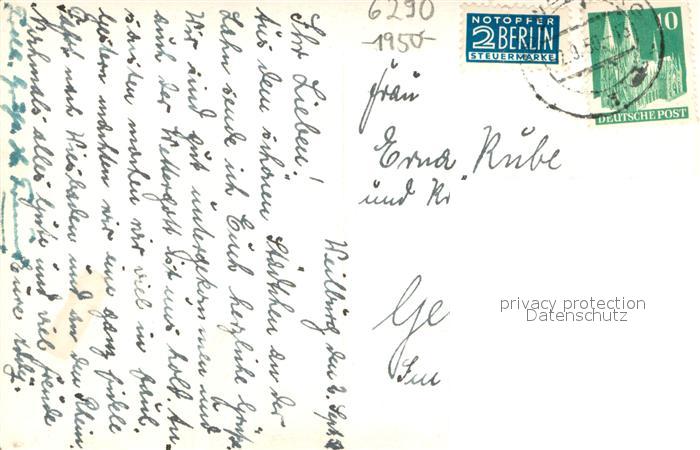 6290
1950
NOTOPFER
2 BERLIN
STEUERMARKE
10
DEUTSCHE POST
Frau
Erna Rübe
und Kr
Ge
privacy protection
Datenschutz
Weilburg den 2. Sept.
Ihr Lieben!
Aus dem schönen Städtchen an der
Lahn sende ich Euch herzliche Grüße.
Wir sind gut untergekommen und
auch der Wettergott ist uns hold.
machen wir viel in
Gestern machten wir eine ganz fidele
Fahrt nach Wiesbaden und an den Rhein.
Nochmals alles Gute und viel Freude
Eure